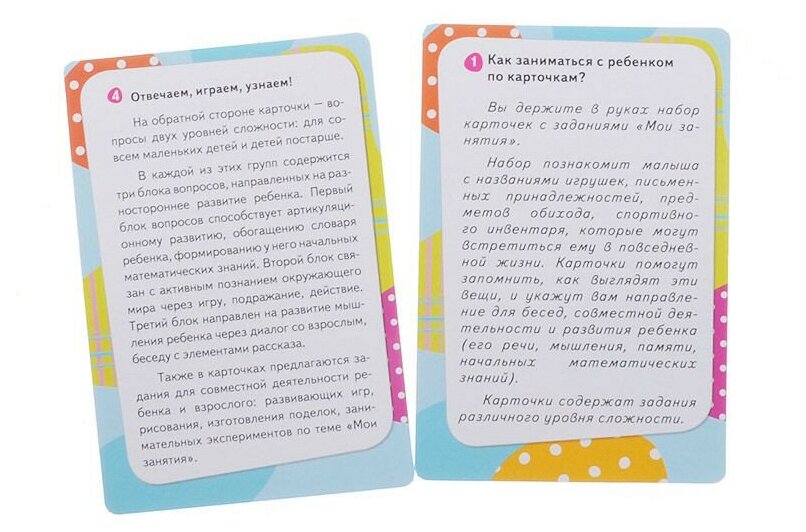 4 Отвечаем, играем, узнаем!
На обратной стороне карточки — во-
просы двух уровней сложности: для со-
всем маленьких детей и детей постарше.
В каждой из этих групп содержится
три блока вопросов, направленных на раз-
ностороннее развитие ребенка. Первый
блок вопросов способствует артикуляци-
онному развитию, обогащению словаря
ребенка, формированию у него начальных
математических знаний. Второй блок свя-
зан с активным познанием окружающего
мира через игру, подражание, действие.
Третий блок направлен на развитие мыш-
ления ребенка через диалог со взрослым,
беседу с элементами рассказа.
Также в карточках предлагаются за-
дания для совместной деятельности ре-
бенка и взрослого: развивающих игр,
рисования, изготовления поделок, зани-
мательных экспериментов по теме «Мои
занятия».
1 Как заниматься с ребенком
по карточкам?
Вы держите в руках набор
карточек с заданиями «Мои за-
нятия».
Набор познакомит малыша
с названиями игрушек, письмен-
ных принадлежностей, пред-
метов обихода, спортивно-
го инвентаря, которые могут
встретиться ему в повседнев-
ной жизни. Карточки помогут
запомнить, как выглядят эти
вещи, и укажут вам направле-
ние для бесед, совместной дея-
тельности и развития ребенка
(его речи, мышления, памяти,
начальных математических
знаний).
Карточки содержат задания
различного уровня сложности.